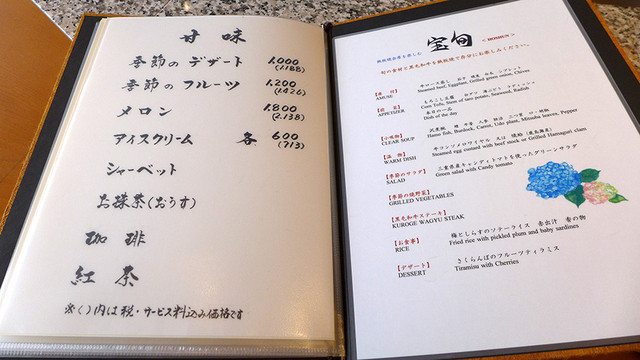 甘味
季節のデザート 1,000
(1,188)
季節のフルーツ 1,200
(1,426)
メロン 1,800
(2,138)
アイスクリーム 各 600
(713)
シャーベット
お抹茶(おうす)
珈琲
紅茶
※( )内は税・サービス料込み価格です
鉄板焼会席を楽しむ 宝旬
旬の食材と黒毛和牛を鉄板焼で存分にお楽しみください。
AMUSE
Steamed beef, Eggplant, Grilled green onion, Chives
【前菜】
もろこし豆腐
APPETIZER
Corn Tofu, Stem of taro potato, Seaweed, Radish
本日の一品
Dish of the day
【小吸物】
CLEAR SOUP
Hamo fish, Burdock, Carrot, Udo plant, Mitsuba leaves, Pepper
【温物】
牛コンソメロワイヤル
WARM DISH
Steamed egg custard with beef stock or Grilled Hamaguri clam
【季節のサラダ】
三重県産キャンディトマトを使ったグリーンサラダ
SALAD
Green salad with Candy tomato
【季節の焼野菜】
GRILLED VEGETABLES
【黒毛和牛ステーキ】
KUROGE WAGYU STEAK
【お食事】
梅としらすのソテーライス 赤出汁 香の物
RICE
Fried rice with pickled plum and baby sardines
【デザート】
さくらんぼのフルーツティラミス
DESSERT
Tiramisu with Cherries